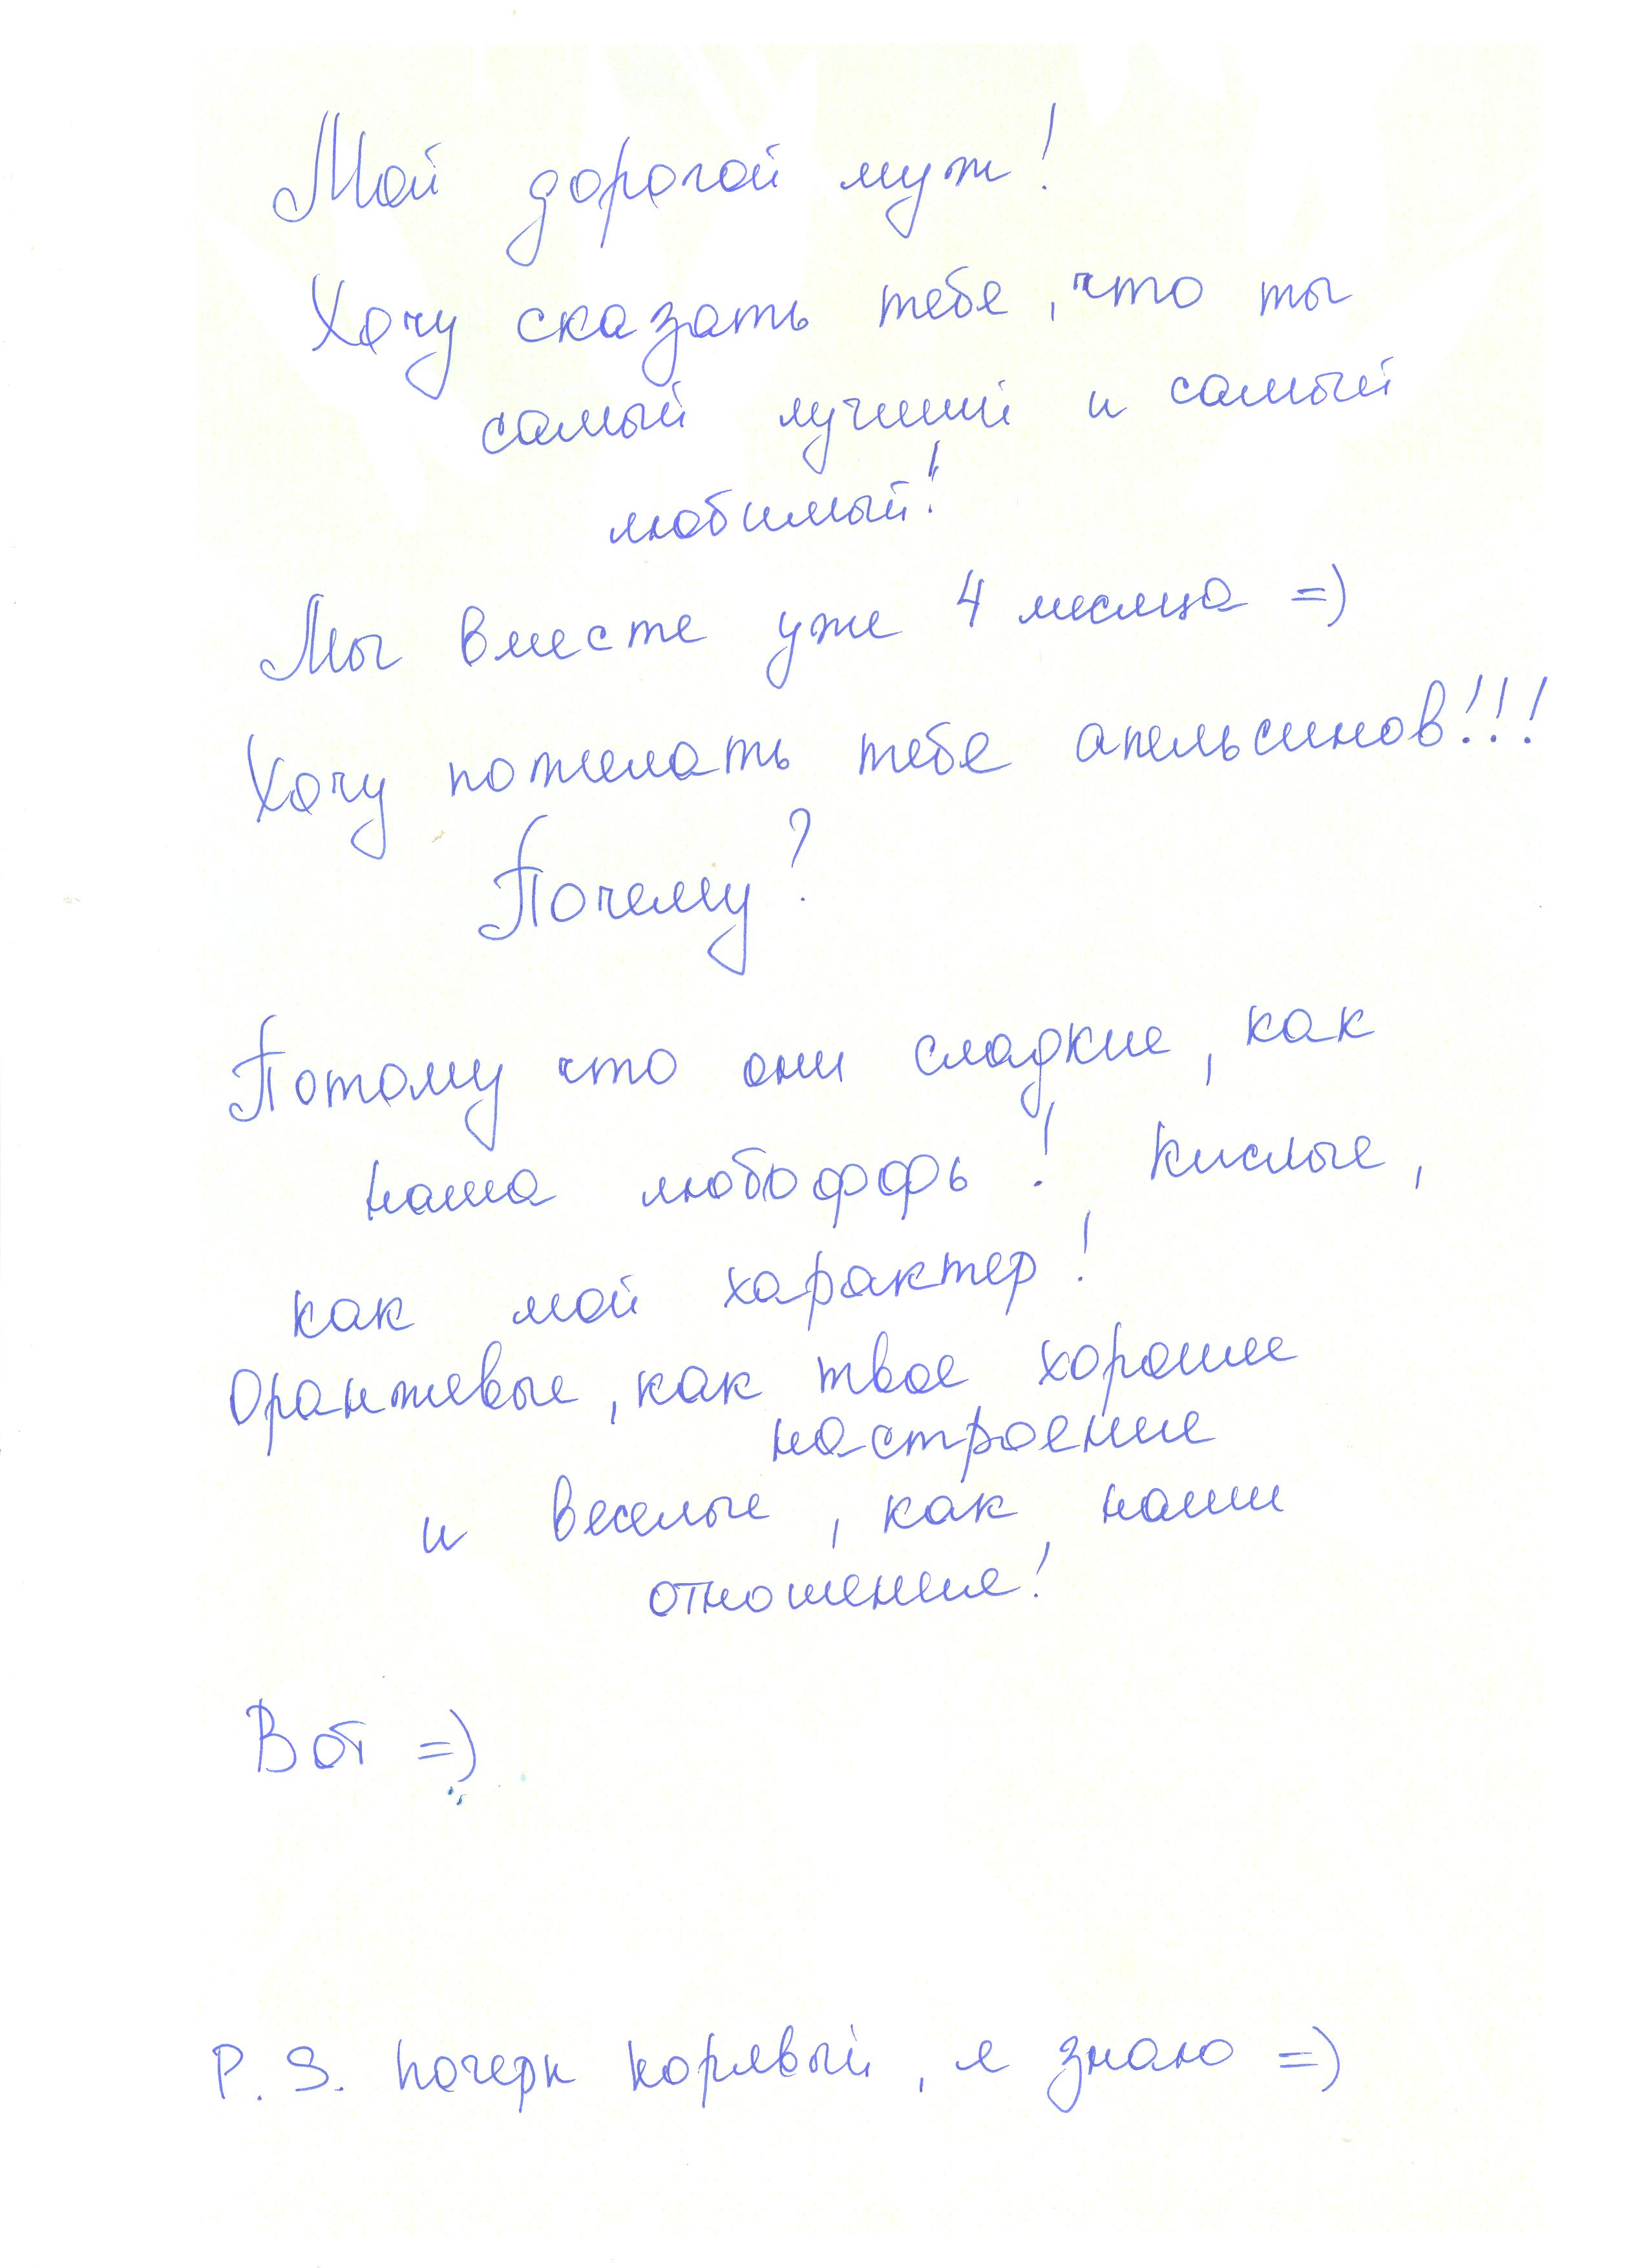 Мой дорогой муж!
Хочу сказать тебе, что ты
самый лучший и самый
любимый!
Мы вместе уже 4 месяца =)
Хочу пожелать тебе апельсинов!!!
Почему?
Потому что они сладкие, как
наша любоффь! Кислые,
как мой характер!
Оранжевые, как твое хорошее
настроение
и веселые, как наши
отношение!
Вот =)
P.S. Почерк корявый, я знаю =)